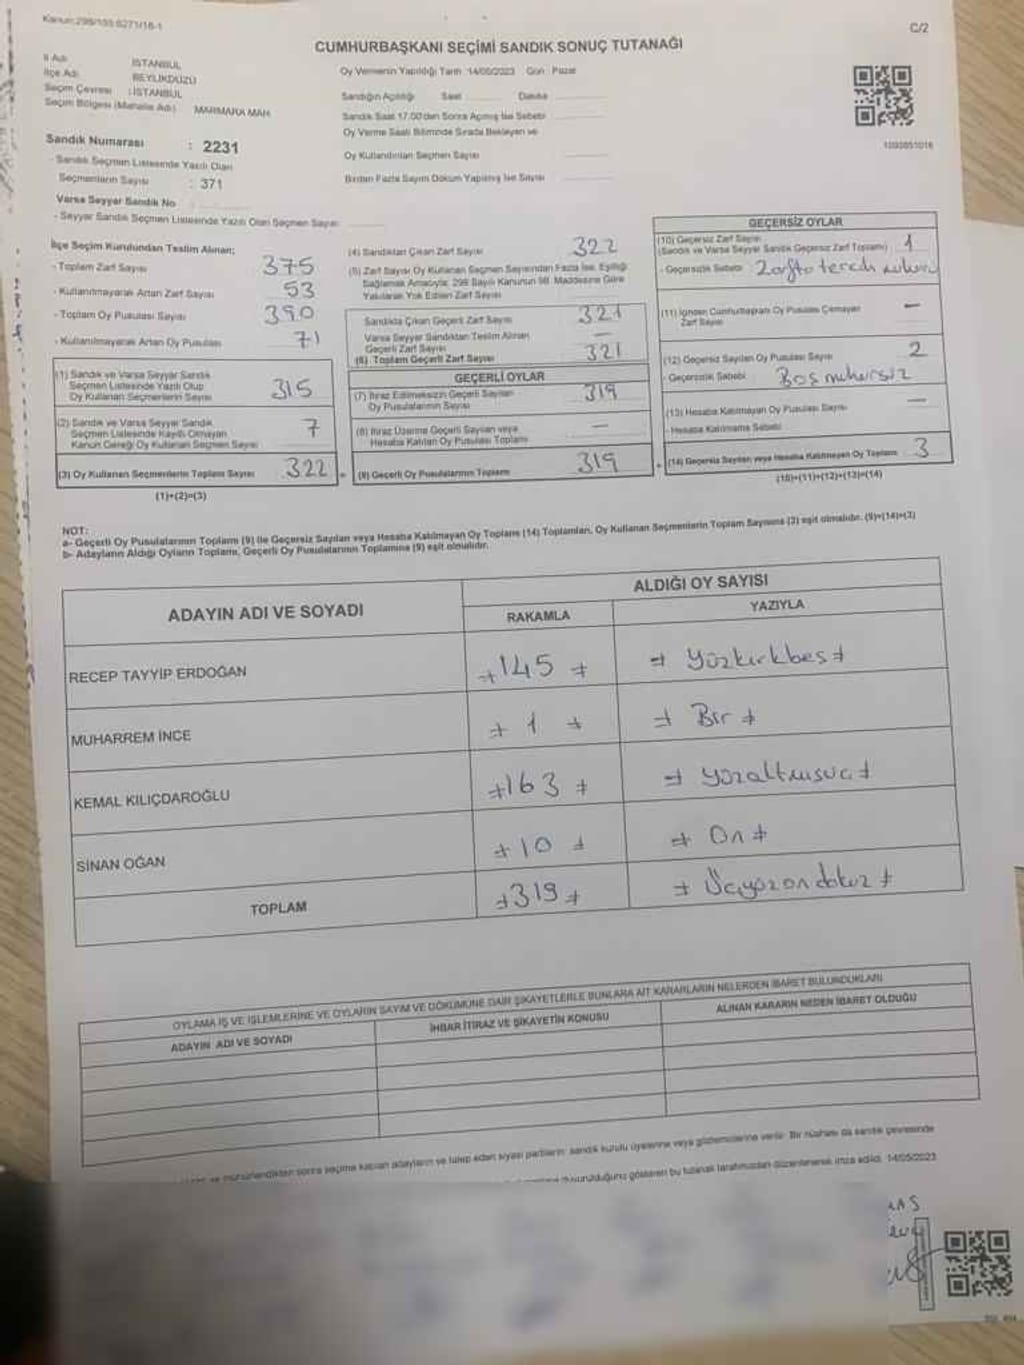 Kanun:298/105 6271/16-1
C/2
CUMHURBAŞKANI SEÇİMİ SANDIK SONUÇ TUTANAĞI
İl Adı : İSTANBUL
İlçe Adı : BEYLİKDÜZÜ
Seçim Çevresi : İSTANBUL
Seçim Bölgesi (Mahalle Adı) MARMARA MAH
Oy Vermenin Yapıldığı Tarih :14/05/2023 Gün : Pazar
Sandığın Açıldığı Saat Dakika
Sandık Saat 17.00'den Sonra Açmış İse Sebebi
Oy Verme Saati Bitiminde Sırada Bekleyen ve
Oy Kullandırılan Seçmen Sayısı
Birden Fazla Sayım Döküm Yapılmış İse Sayısı
Sandık Numarası : 2231
- Sandık Seçmen Listesinde Yazılı Olan
Seçmenlerin Sayısı : 371
Varsa Seyyar Sandık No
- Seyyar Sandık Seçmen Listesinde Yazılı Olan Seçmen Sayısı
İlçe Seçim Kurulundan Teslim Alınan;
- Toplam Zarf Sayısı 375
- Kullanılmayarak Artan Zarf Sayısı 53
- Toplam Oy Pusulası Sayısı 390
- Kullanılmayarak Artan Oy Pusulası 71
(1) Sandık ve Varsa Seyyar Sandık
Seçmen Listesinde Yazılı Olup
Oy Kullanan Seçmenlerin Sayısı 315
(2) Sandık ve Varsa Seyyar Sandık
Seçmen Listesinde Kayıtlı Olmayan
Kanun Gereği Oy Kullanan Seçmen Sayısı 7
(3) Oy Kullanan Seçmenlerin Toplam Sayısı 322
(1)+(2)=(3)
(4) Sandıktan Çıkan Zarf Sayısı 322
(5) Zarf Sayısı Oy Kullanan Seçmen Sayısından Fazla İse, Eşitliği
Sağlamak Amacıyla; 298 Sayılı Kanunun 98. Maddesine Göre
Yakılarak Yok Edilen Zarf Sayısı
Sandıkta Çıkan Geçerli Zarf Sayısı 321
Varsa Seyyar Sandıktan Teslim Alınan
Geçerli Zarf Sayısı —
(6) Toplam Geçerli Zarf Sayısı 321
GEÇERLİ OYLAR
(7) İtiraz Edilmeksizin Geçerli Sayılan
Oy Pusulalarının Sayısı 319
(8) İtiraz Üzerine Geçerli Sayılan veya
Hesaba Katılan Oy Pusulası Toplamı —
(9) Geçerli Oy Pusulalarının Toplamı 319
GEÇERSİZ OYLAR
(10) Geçersiz Zarf Sayısı
(Sandık ve Varsa Seyyar Sandık Geçersiz Zarf Toplamı) 1
- Geçersizlik Sebebi
(11) İçinden Cumhurbaşkanı Oy Pusulası Çıkmayan
Zarf Sayısı —
(12) Geçersiz Sayılan Oy Pusulası Sayısı 2
- Geçersizlik Sebebi Boş mühürsüz
(13) Hesaba Katılmayan Oy Pusulası Sayısı —
- Hesaba Katılmama Sebebi
(14) Geçersiz Sayılan veya Hesaba Katılmayan Oy Toplamı 3
(10)+(11)+(12)+(13)=(14)
NOT:
a- Geçerli Oy Pusulalarının Toplamı (9) ile Geçersiz Sayılan veya Hesaba Katılmayan Oy Toplamı (14) Toplamları, Oy Kullanan Seçmenlerin Toplam Sayısına (3) eşit olmalıdır. (9)+(14)=(3)
b- Adayların Aldığı Oyların Toplamı, Geçerli Oy Pusulalarının Toplamına (9) eşit olmalıdır.
ADAYIN ADI VE SOYADI
ALDIĞI OY SAYISI
RAKAMLA YAZIYLA
RECEP TAYYİP ERDOĞAN 145 Yüzkırkbeş
MUHARREM İNCE 1 Bir
KEMAL KILIÇDAROĞLU 163 yüzaltmışüç
SİNAN OĞAN 10 On
TOPLAM 319 Üçyüzondokuz
OYLAMA İŞ VE İŞLEMLERİNE VE OYLARIN SAYIM VE DÖKÜMÜNE DAİR ŞİKAYETLERLE BUNLARA AİT KARARLARIN NELERDEN İBARET BULUNDUKLARI
ADAYIN ADI VE SOYADI İHBAR İTİRAZ VE ŞİKAYETİN KONUSU ALINAN KARARIN NEDEN İBARET OLDUĞU
mühürlendikten sonra seçime katılan adayların ve talep eden siyasi partilerin sandık kurulu üyelerine veya gözlemcilerine verilir. Bir nüshası da sandık çevresinde
duyurulduğunu gösteren bu tutanak tarafımızdan düzenlenerek imza edildi. 14/05/2023